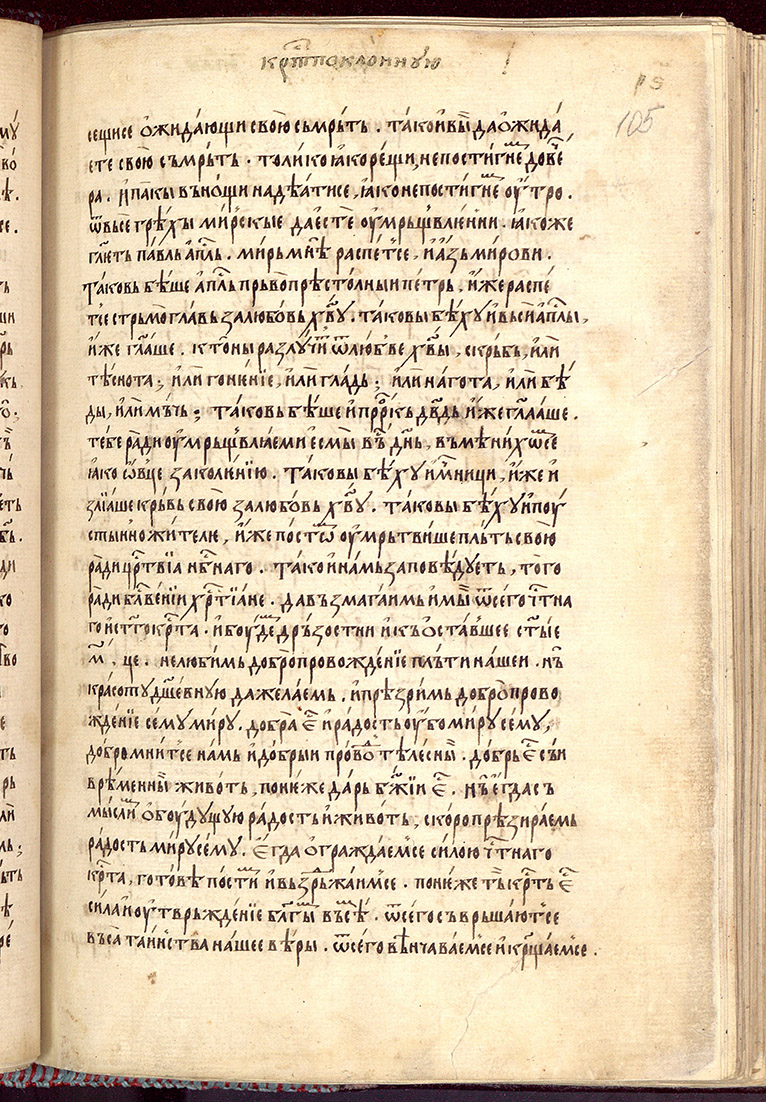 крⷭ҇топоклонную
рє
105
сещисе ѻжидающи свою съмрьть . такоивы да ѻжида
ете свою съмрьть . толико ꙗко рещи, не постигнеⷮ до вече
ра . и пакы въ нощи надеꙗтисе , ꙗко не постигнеⷮ оутро .
ѿ высе грѣхы мирскые да есте оумрьщвлении . ꙗкоже
глет павль апль . мирь мнѣ распетсе , и азь мирови .
таковь бѣше апль прьвопрѣстолныи петрь , иже распе
тсе стрьмоглавь за любовь хву . таковы бѣху и вьси апли ,
иже глаше . кто ны разлучит ѿ любве хвы , скрьбь , или
тѣснота ; или гонение , или гладь ; или нагота , или бѣ
ды , или мьчь ; таковь бѣше и прркь двдь иже глааше .
тебе ради оумрьщвлꙗеми есмы въ днь , въмѣнихѡмсе
ꙗко ѡвце заколнию . таковы бѣху и мнци , иже и
злиаше крьвь свою за любовь хву . таковы бѣху и поу
стынножителю , иже постѡⷨ оумрьтвише пльть свою
ради цртвіа нбнаго . тако и намь заповѣдуеть , того
ради блвении хртіане . да възмагаимь и мы ѿ сего чтна
го и стго крта . и боудеⷨ дрьзостни и къ ѻставшее стые
м҃ , це . не любимь добропровождение пльти нашеи . нь
красоту дшевную да желаемь . и прѣзримь добропрово
ждение сему миру . добра е и радость оубо миру сему ,
добро мнитсе намь и добрыи провоⷣ тѣлесны . добрь е сьи
врѣменны животь , понеже дарь бжии е . нь егда съ
мыслиⷨ ѻ боудущую радость и животь , скоро прѣзираемь
радость миру сему . егда ѻграждаемсе силою чтнаго
крта , готовѣ постиⷨ и въздрьжаимсе . понеже ть крть е
сила и оутврьждение блгыⷨ въсѣⷨ . ѿ сего съврьшаютсе
въса таинства нашее вѣры . ѿ сего вѣнчаваемсе и крщаемсе .